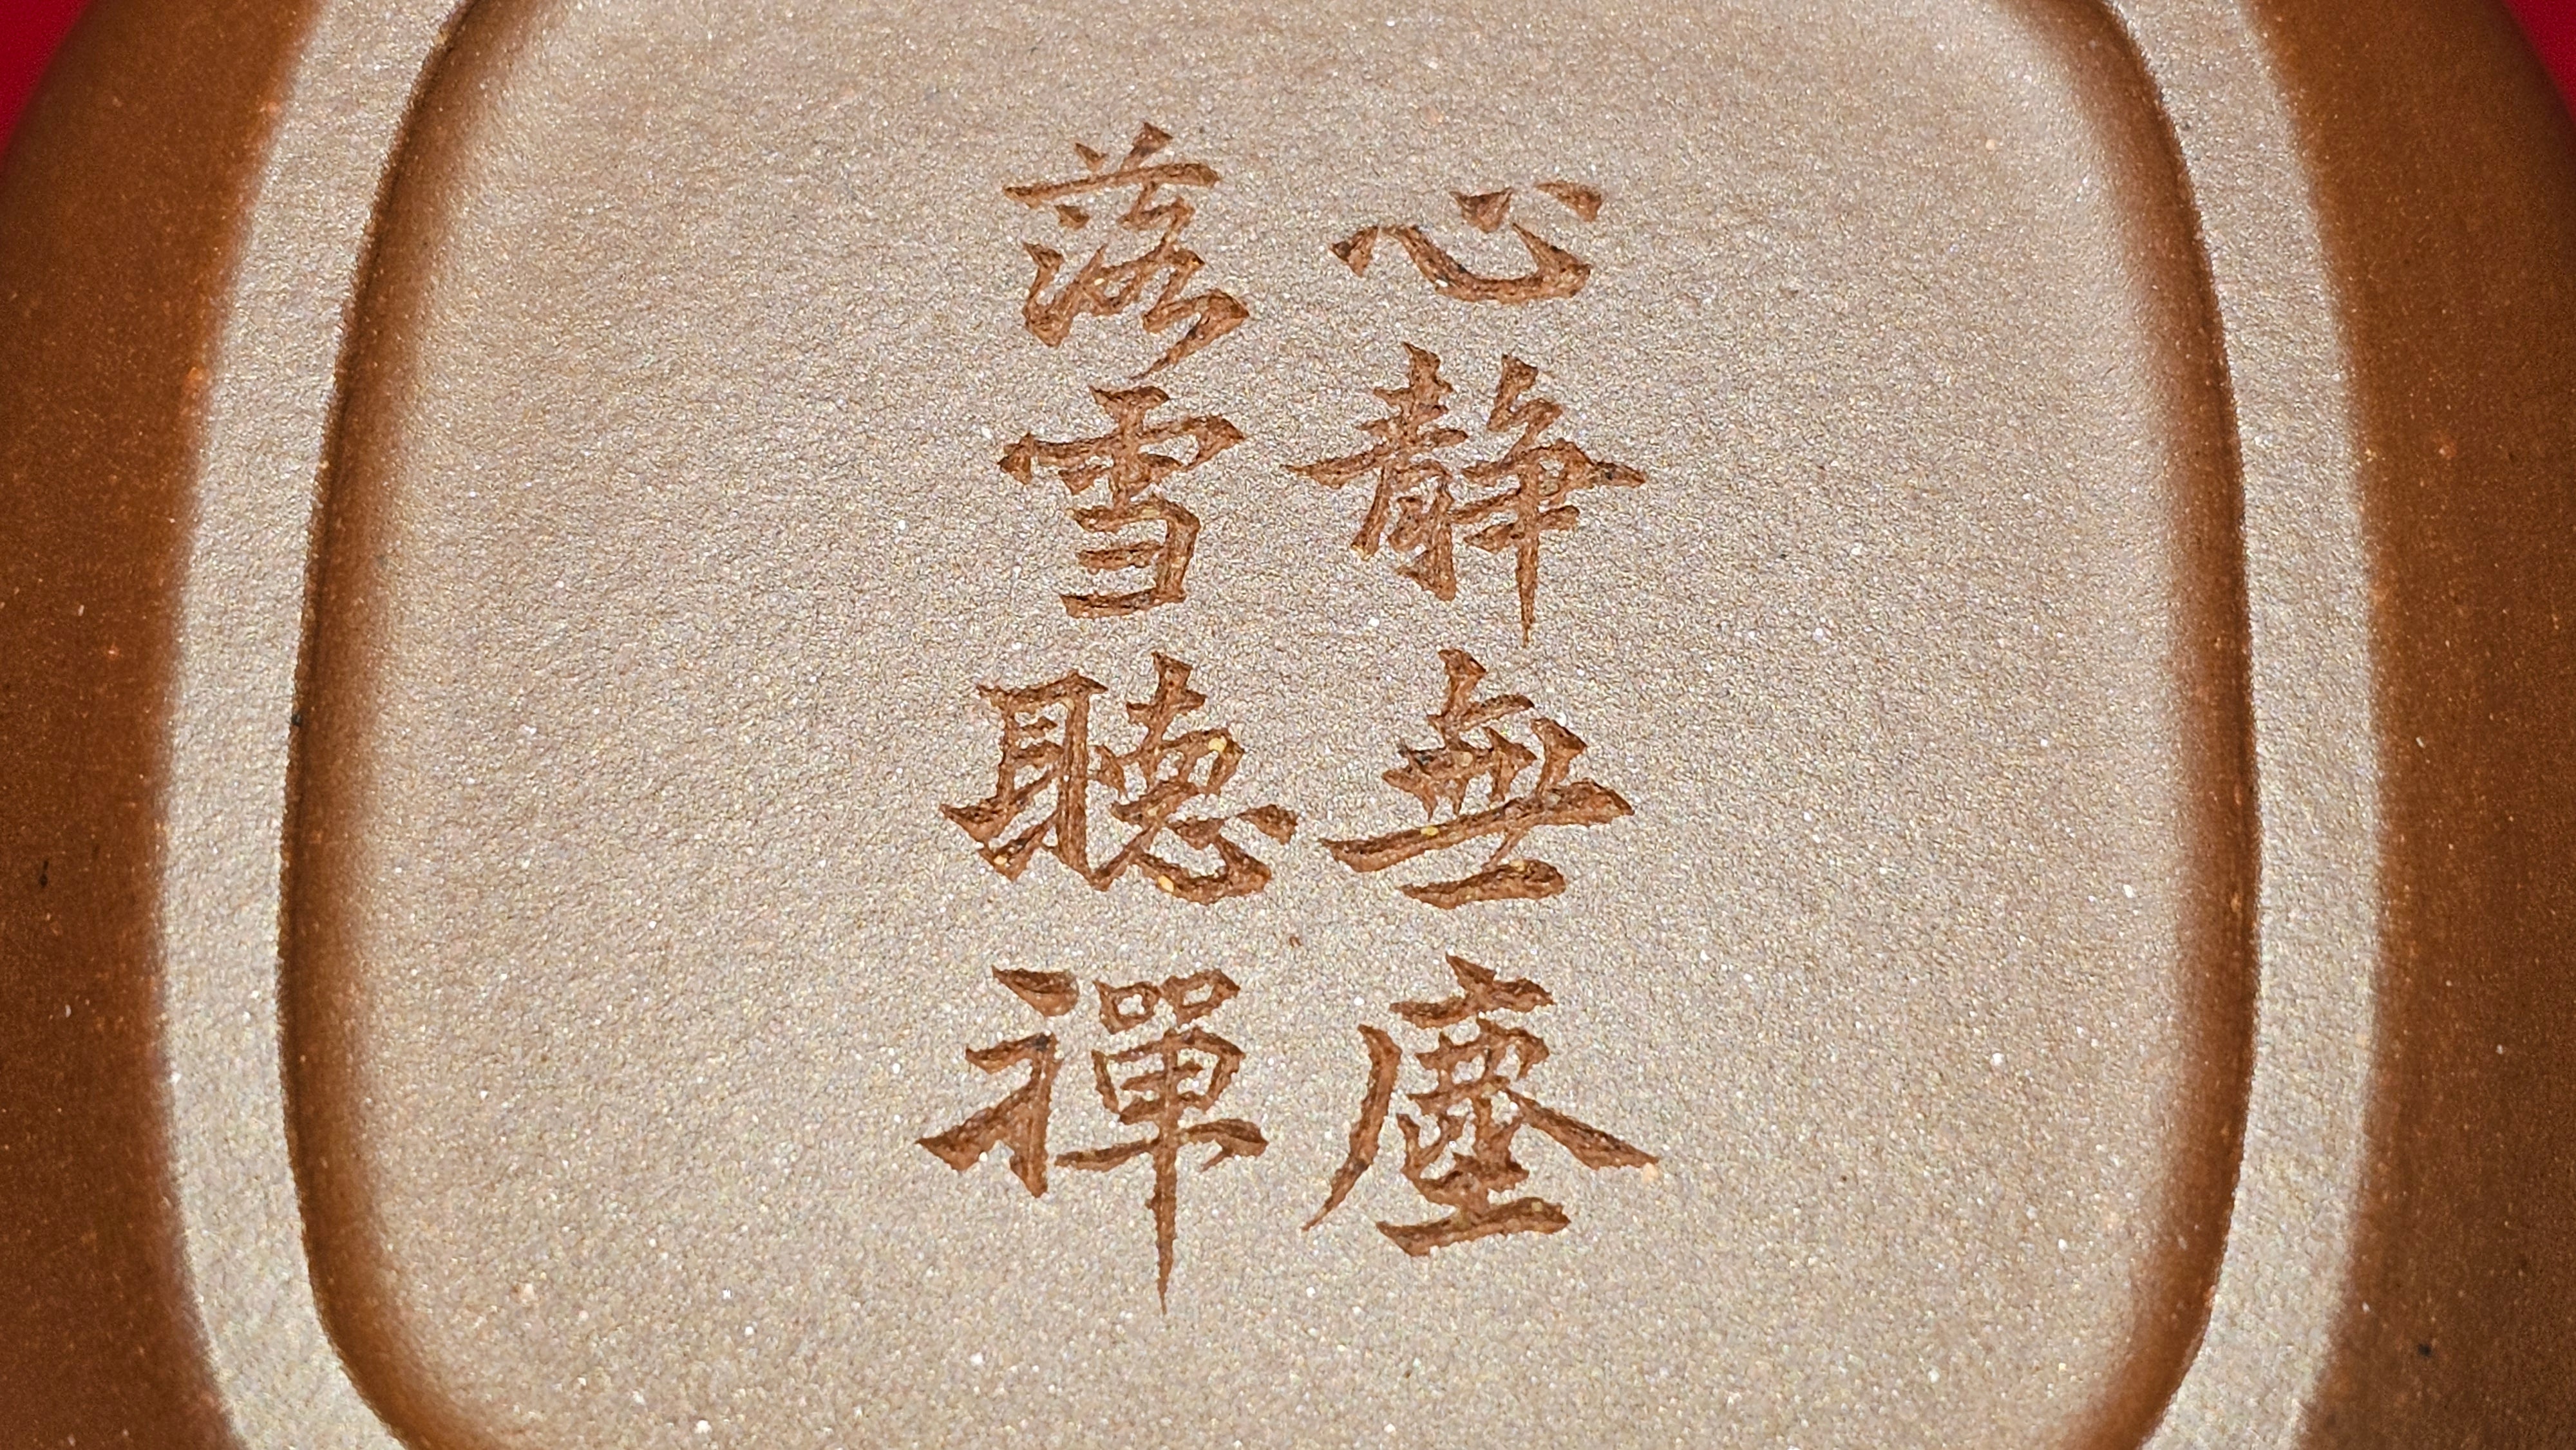 心静無塵
落雪聽禪